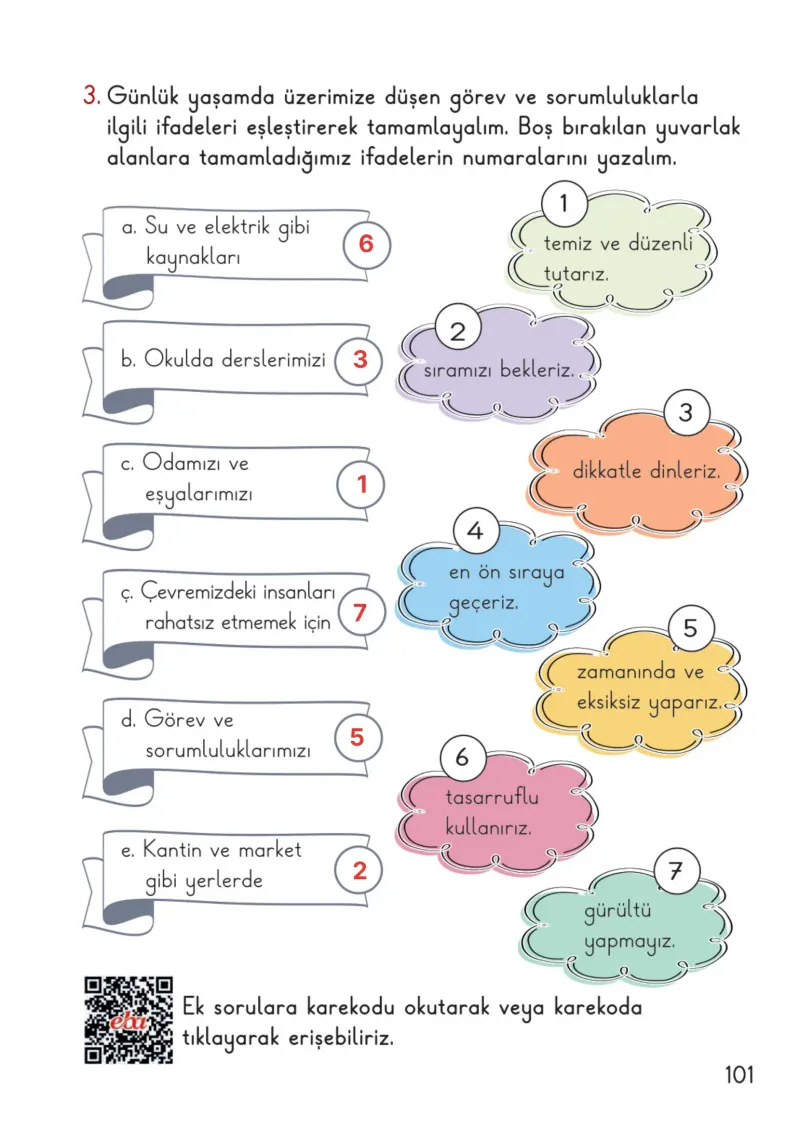 3. Günlük yaşamda üzerimize düşen görev ve sorumluluklarla
ilgili ifadeleri eşleştirerek tamamlayalım. Boş bırakılan yuvarlak
alanlara tamamladığımız ifadelerin numaralarını yazalım.
a. Su ve elektrik gibi
kaynakları
6
1
temiz ve düzenli
tutarız.
b. Okulda derslerimizi
3
2
sıramızı bekleriz.
c. Odamızı ve
eşyalarımızı
1
3
dikkatle dinleriz.
ç. Çevremizdeki insanları
rahatsız etmemek için
7
4
en ön sıraya
geçeriz.
d. Görev ve
sorumluluklarımızı
5
5
zamanında ve
eksiksiz yaparız.
e. Kantin ve market
gibi yerlerde
2
6
tasarruflu
kullanırız.
7
gürültü
yapmayız.
eba
Ek sorulara karekodu okutarak veya karekoda
tıklayarak erişebiliriz.
101